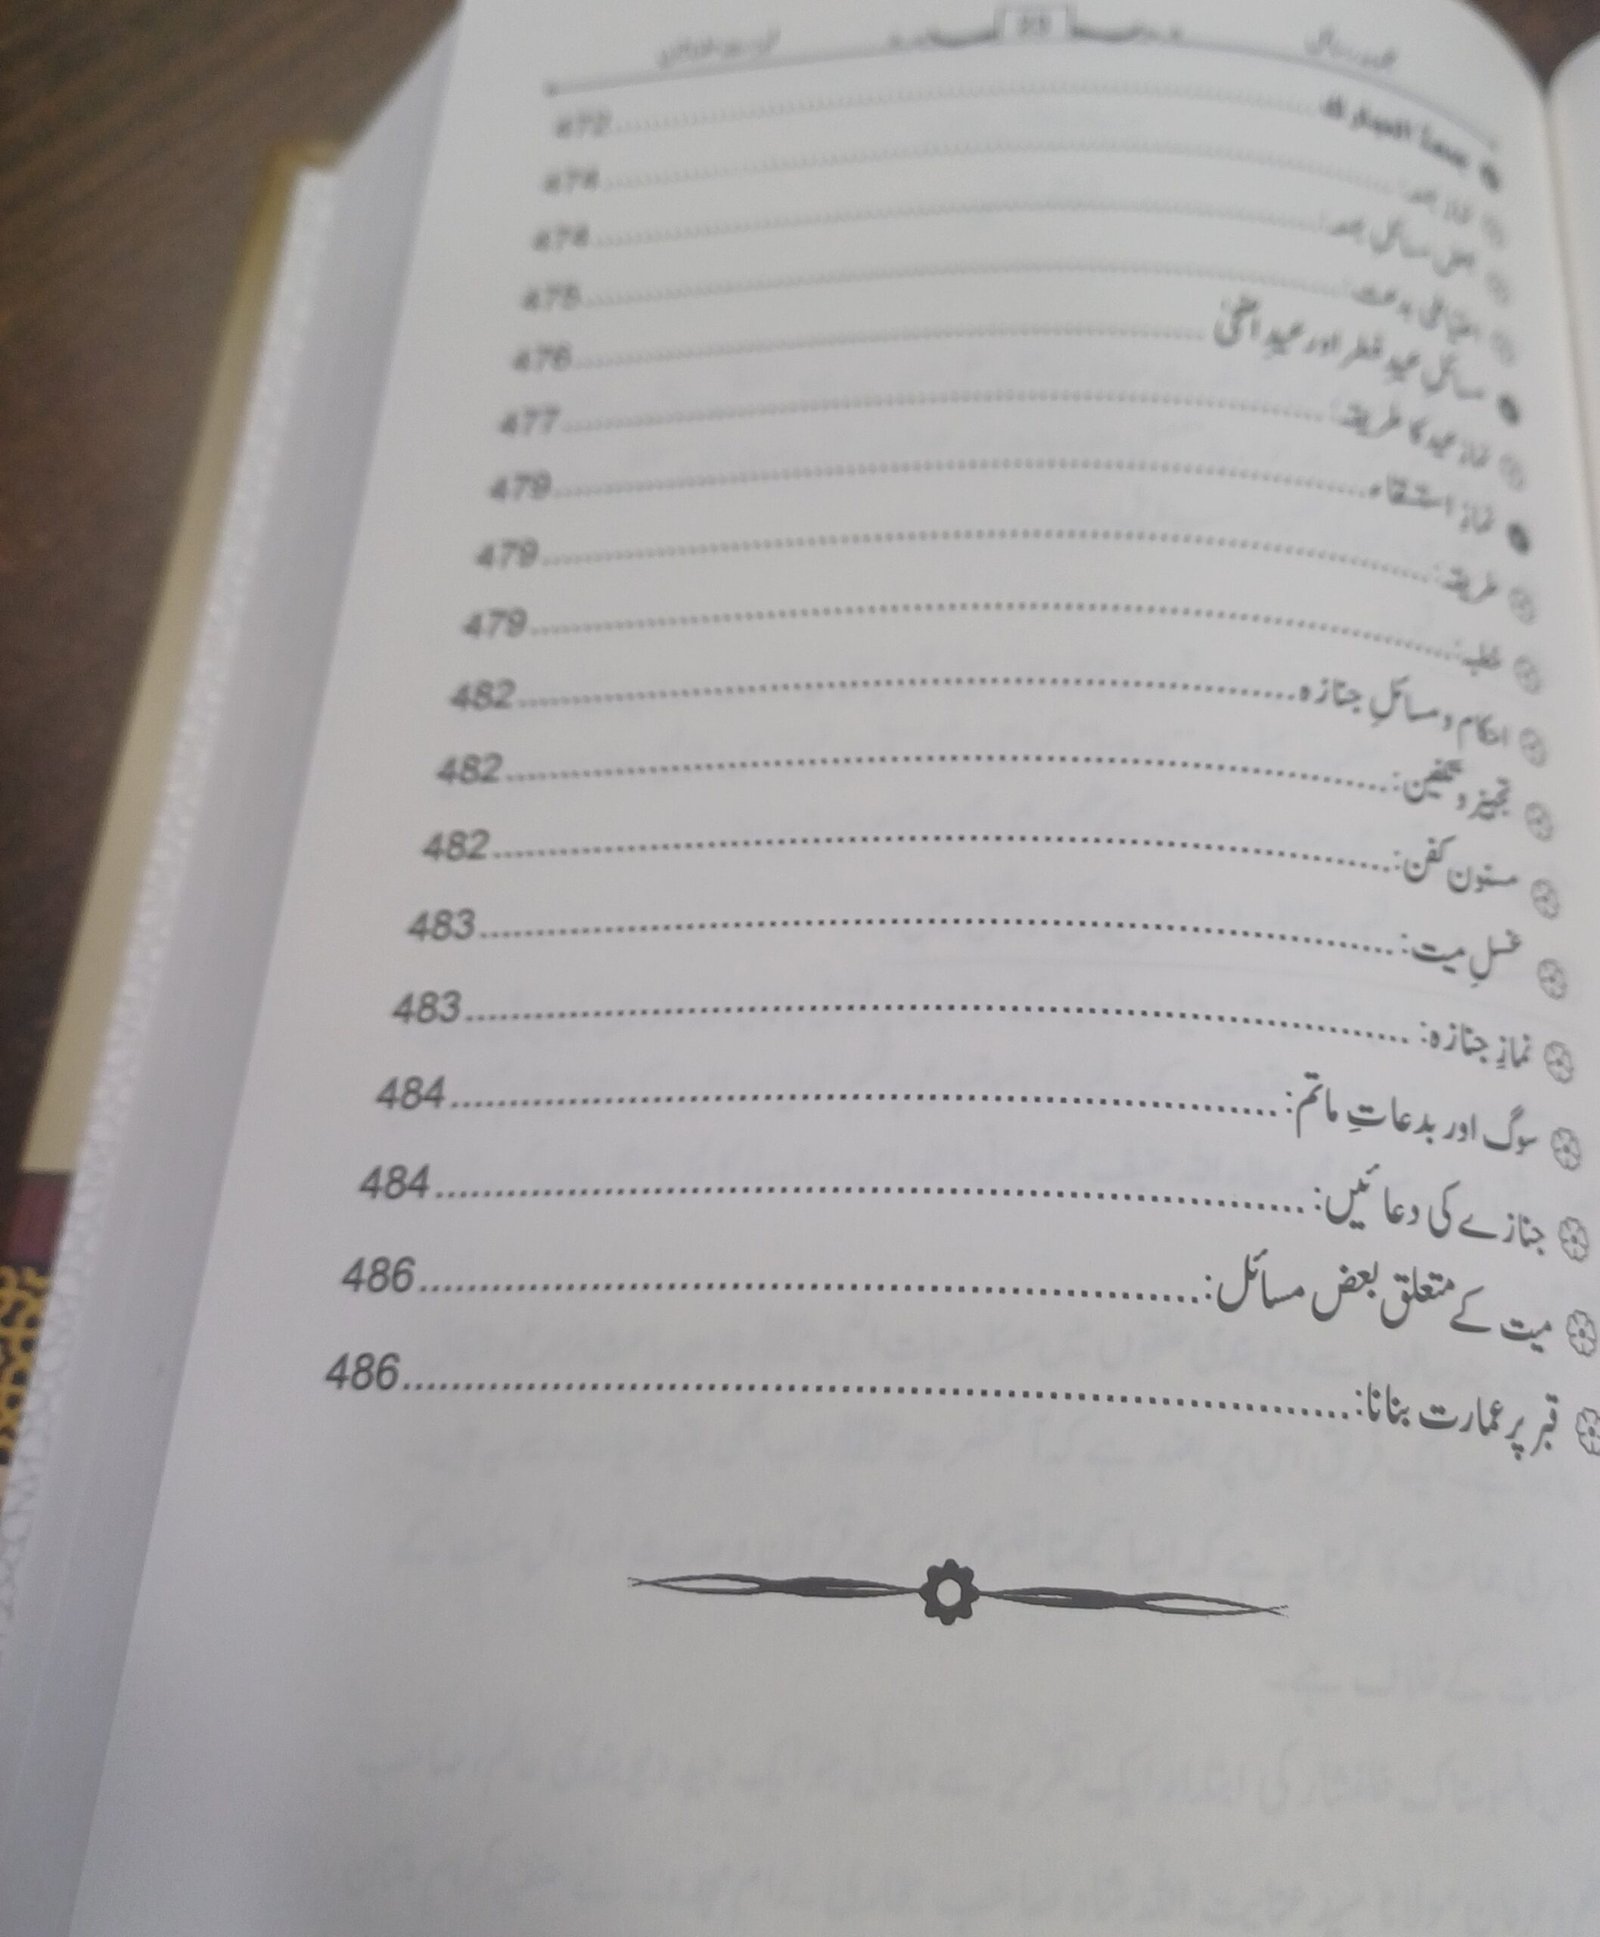 جمعۃ المبارک
نمازِ جمعہ:
بعض مسائلِ جمعہ: 474
احتیاطی بدعت: 475
مسائلِ عید فطر اور عید اضحیٰ: 476
نمازِ عید کا طریقہ: 477
نمازِ استسقاء 479
طریقہ: 479
خطبہ: 479
احکام و مسائلِ جنازہ 482
تجہیز و تکفین: 482
مسنون کفن: 482
غسلِ میت: 483
نمازِ جنازہ: 483
سوگ اور بدعاتِ ماتم: 484
جنازے کی دعائیں: 484
میت کے متعلق بعض مسائل: 486
قبر پر عمارت بنانا: 486